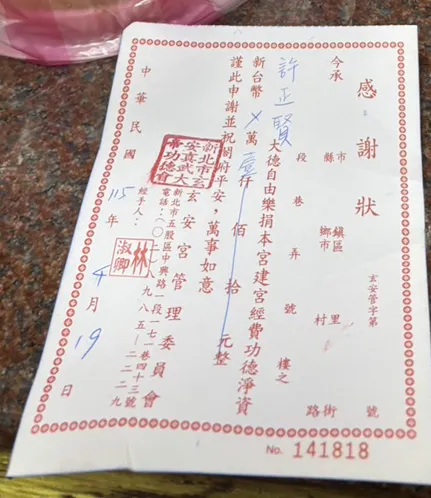 感謝狀
玄安管字第 號
今承 縣市 鄉鎮市區 村里 路街
段 巷 弄 號 樓之
許正賢 大德自由樂捐本宮建宮經費功德淨資
新台幣 X 萬 壹 仟 佰 拾 元整
謹此申謝並祝闔府平安,萬事如意
玄安宮管理委員會
新北市玄安真武大帝功德會
新北市五股區中興路一段一七一巷四十三號
電話:(〇二)八九八五-二二二九
經手人:
林淑卿
中華民國 115 年 4 月 19 日
No. 141818